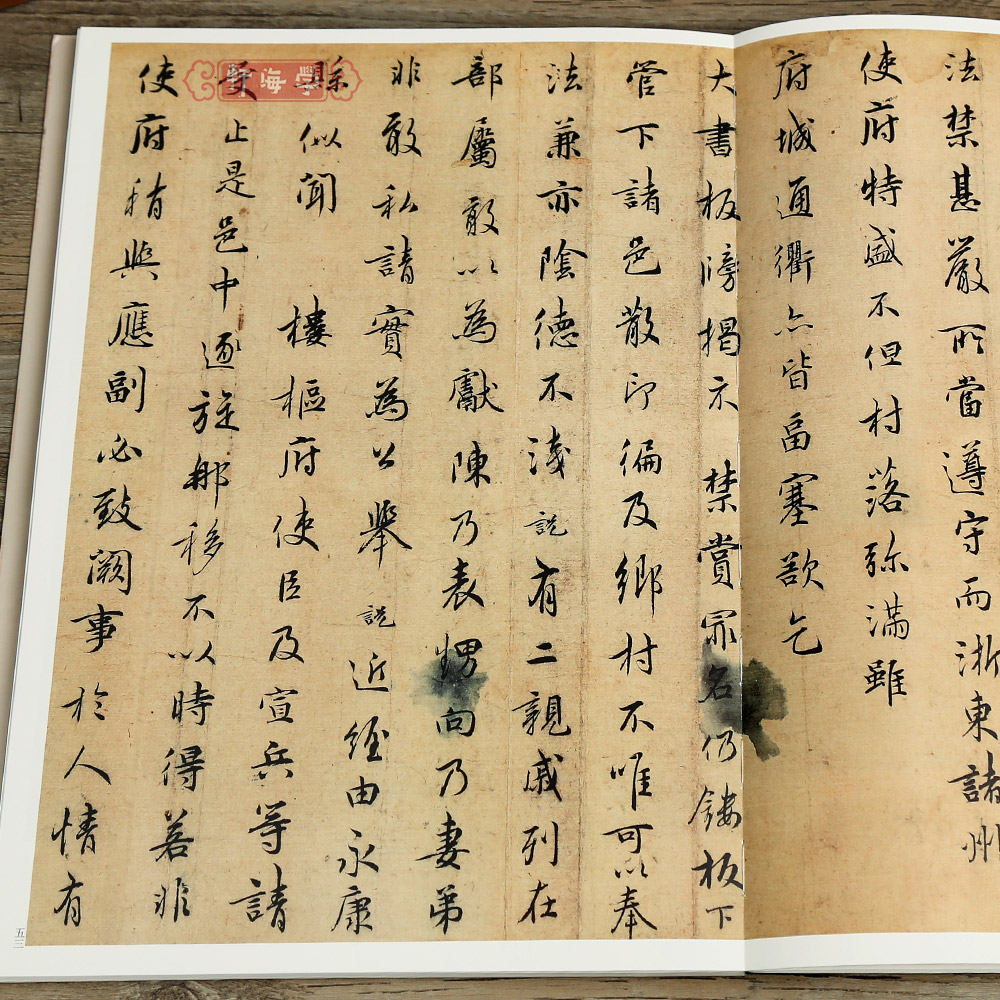 法禁甚嚴所當遵守而浙東諸州
使府特盛不但村落弥滿雖
府城通衢亦皆畐塞欲乞
大書板牓揭示 禁賞罪名仍鏤板下
管下諸邑散印徧及鄉村不唯可以奉
法兼亦陰德不淺説有二親戚列在
部屬敢以為獻陳乃表甥向乃妻弟
非敢私請實為公舉説近經由永康
縣似聞 樓樞府使臣及宣兵等請
受止是邑中逐旋那移不以時得若非
使府稍與應副必致闕事於人情有
學海
五三